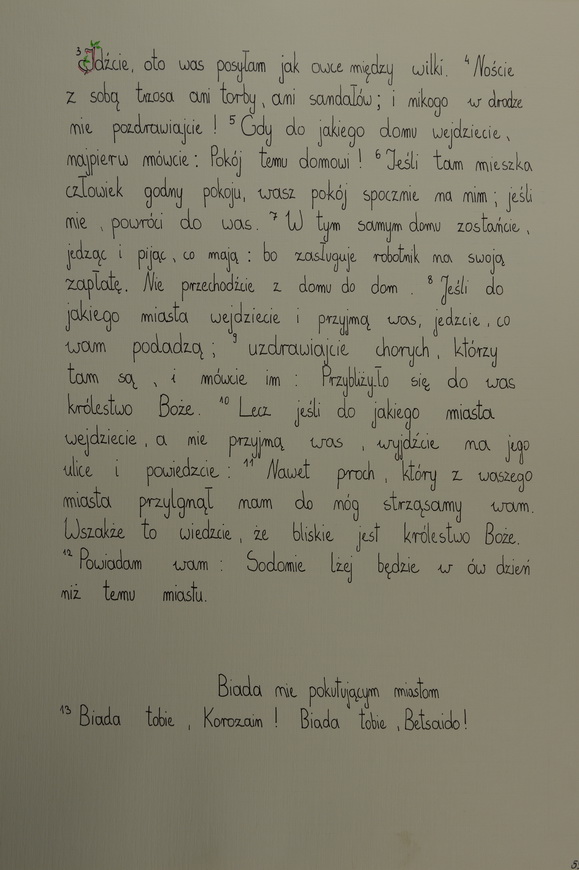 3 Idźcie, oto was posyłam jak owce między wilki. 4 Noście
z sobą trzosa ani torby, ani sandałów; i nikogo w drodze
nie pozdrawiajcie! 5 Gdy do jakiego domu wejdziecie,
najpierw mówcie: Pokój temu domowi! 6 Jeśli tam mieszka
człowiek godny pokoju, wasz pokój spocznie na nim; jeśli
nie, powróci do was. 7 W tym samym domu zostańcie,
jedząc i pijąc, co mają: bo zasługuje robotnik na swoją
zapłatę. Nie przechodźcie z domu do dom. 8 Jeśli do
jakiego miasta wejdziecie i przyjmą was, jedzcie, co
wam podadzą; 9 uzdrawiajcie chorych, którzy
tam są, i mówcie im: Przybliżyło się do was
królestwo Boże. 10 Lecz jeśli do jakiego miasta
wejdziecie, a nie przyjmą was, wyjdźcie na jego
ulice i powiedzcie: 11 Nawet proch, który z waszego
miasta przylgnął nam do nóg strząsamy wam.
Wszakże to wiedzcie, że bliskie jest królestwo Boże.
12 Powiadam wam: Sodomie lżej będzie w ów dzień
niż temu miastu.
Biada nie pokutującym miastom
13 Biada tobie, Korozain! Biada tobie, Betsaido!